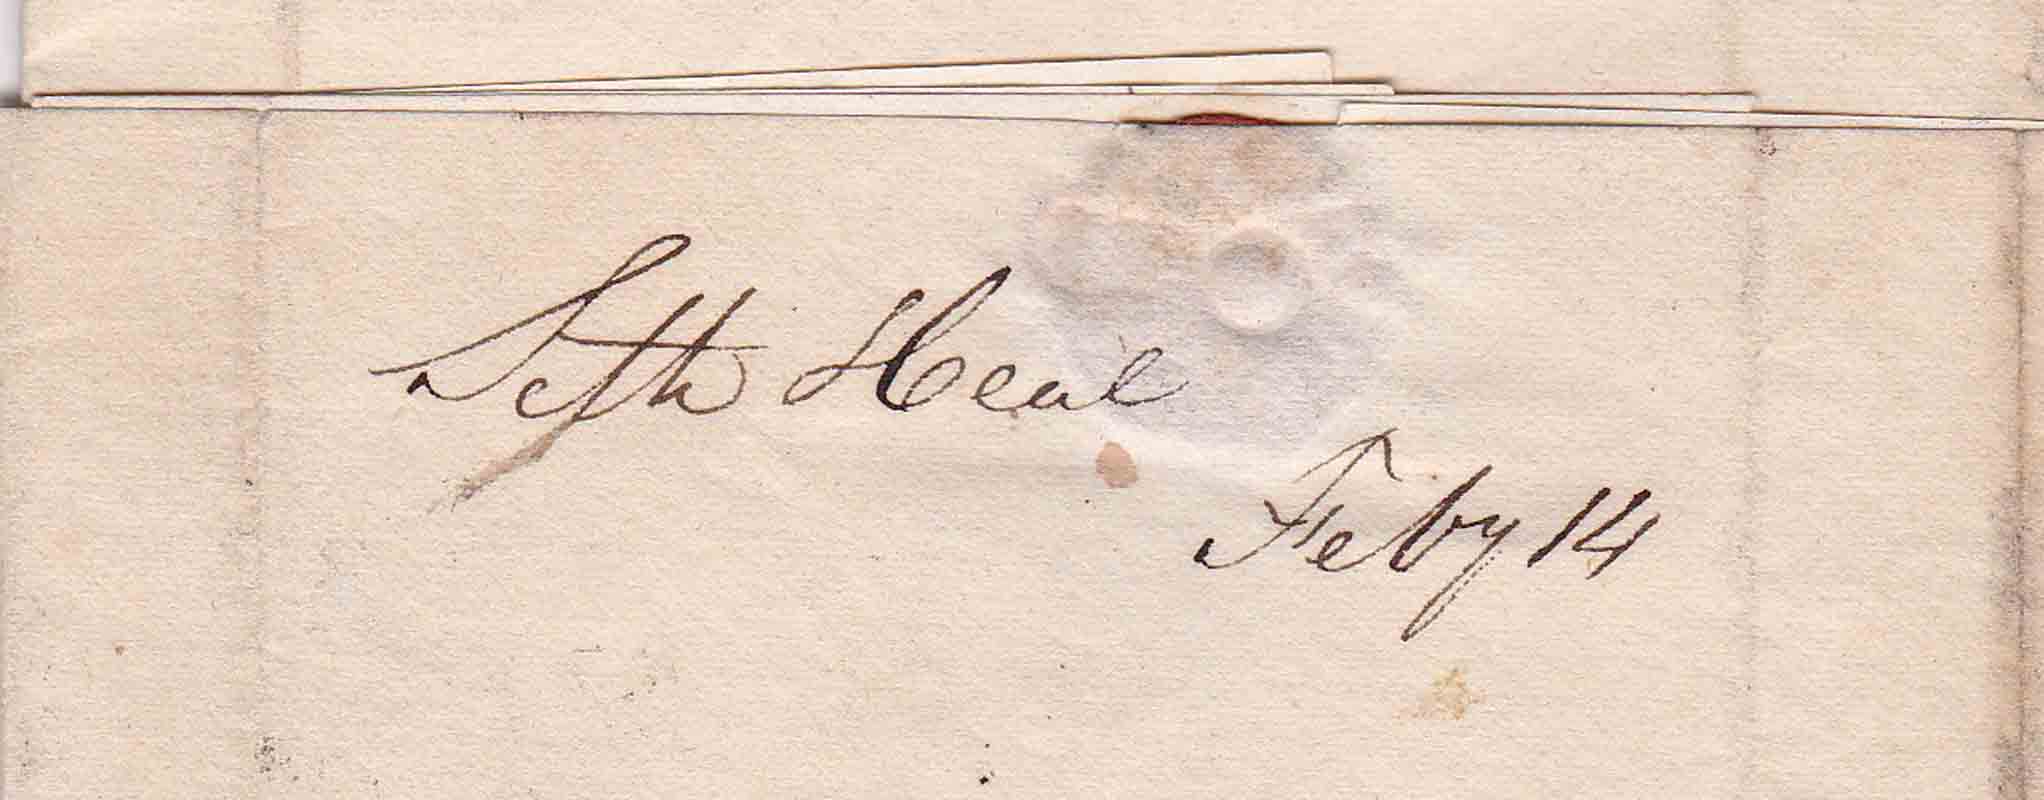 Seth Heal
Feby 14